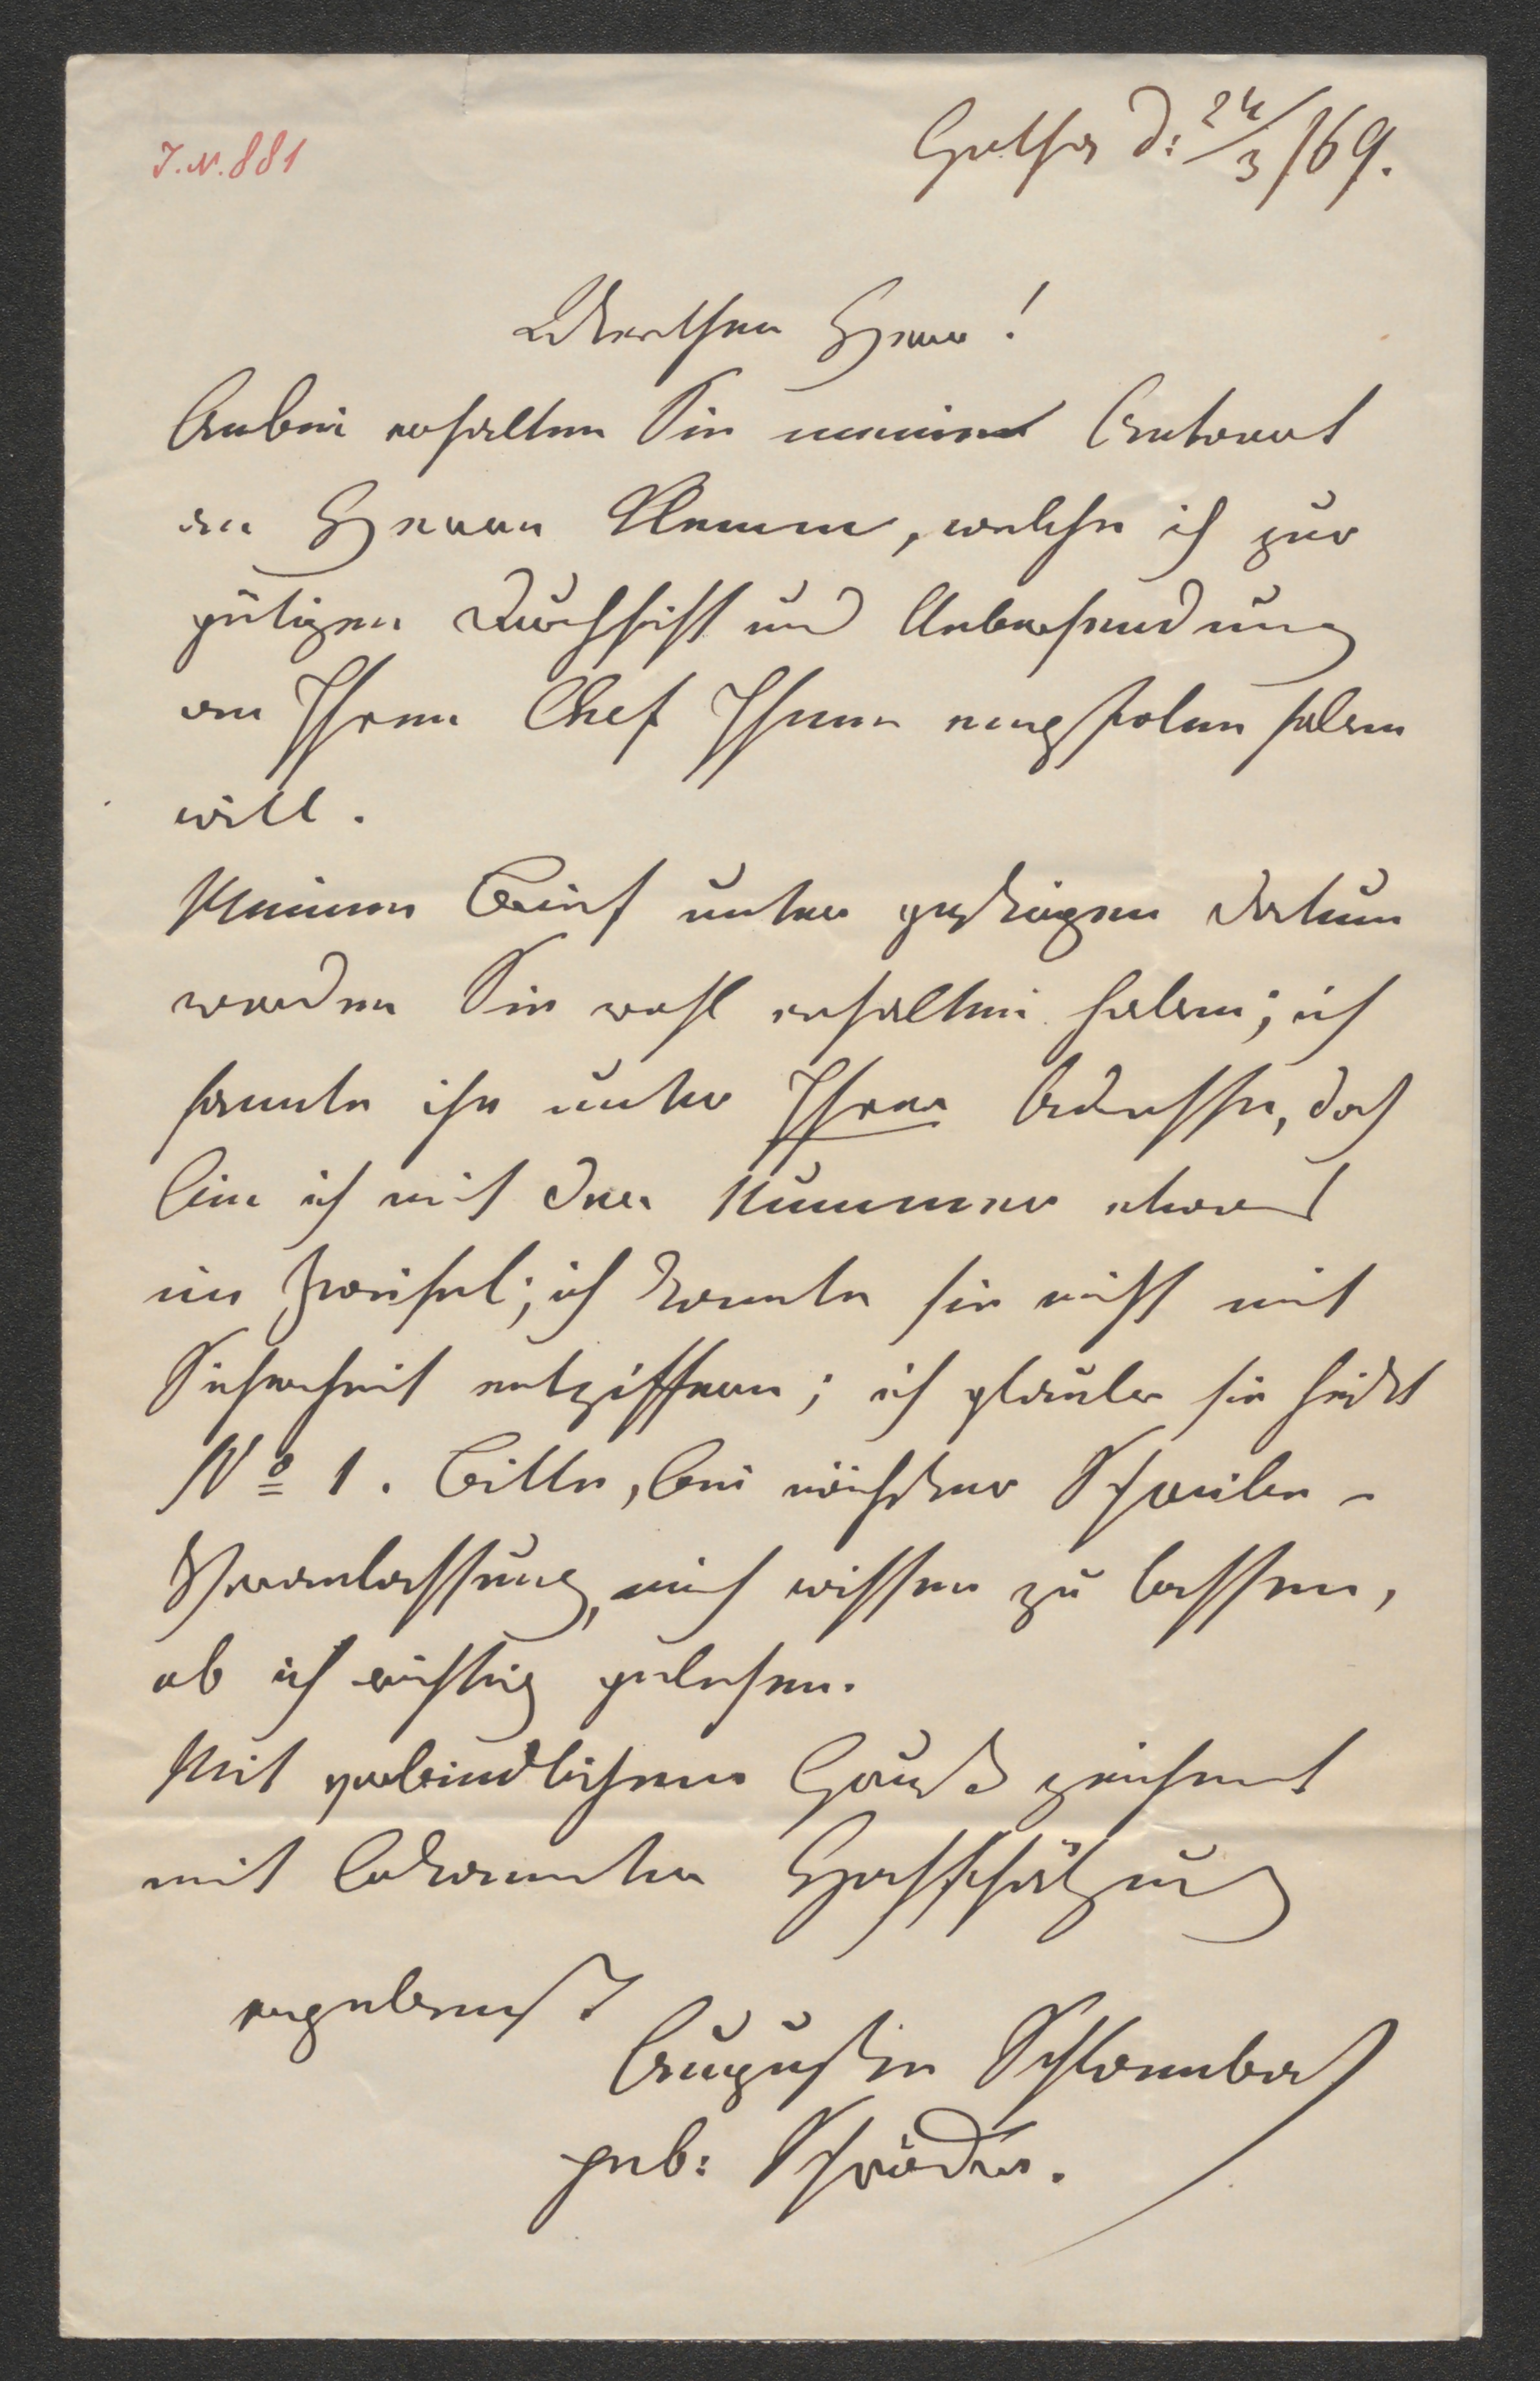 J. N. 881
Gotha d: 24/3/69.
Werther Herr!
Anbei erhalten Sie meine Antwort
an Herrn Klemm, welche ich zur
gütigen Durchsicht und Uebersendung
an Ihren Chef Ihnen empfolen haben
will.
Meinen Brief unter gestrigem Datum
werden Sie wohl erhalten haben; ich
sandte ihn unter Ihrer Adresse, doch
bin ich mit der Nummer etwas
im Zweifel; ich konnte sie nicht mit
Sicherheit entziffern; ich glaube sie heißt
No 1. Bitte, bei nächster Schreibe-
Veranlassung, mich wissen zu lassen,
ob ich richtig gelesen.
Mit verbindlichem Gruß zeichnet
mit bekannter Hochschätzung
ergebenst
Auguste Schlönbach
geb: Schröder.